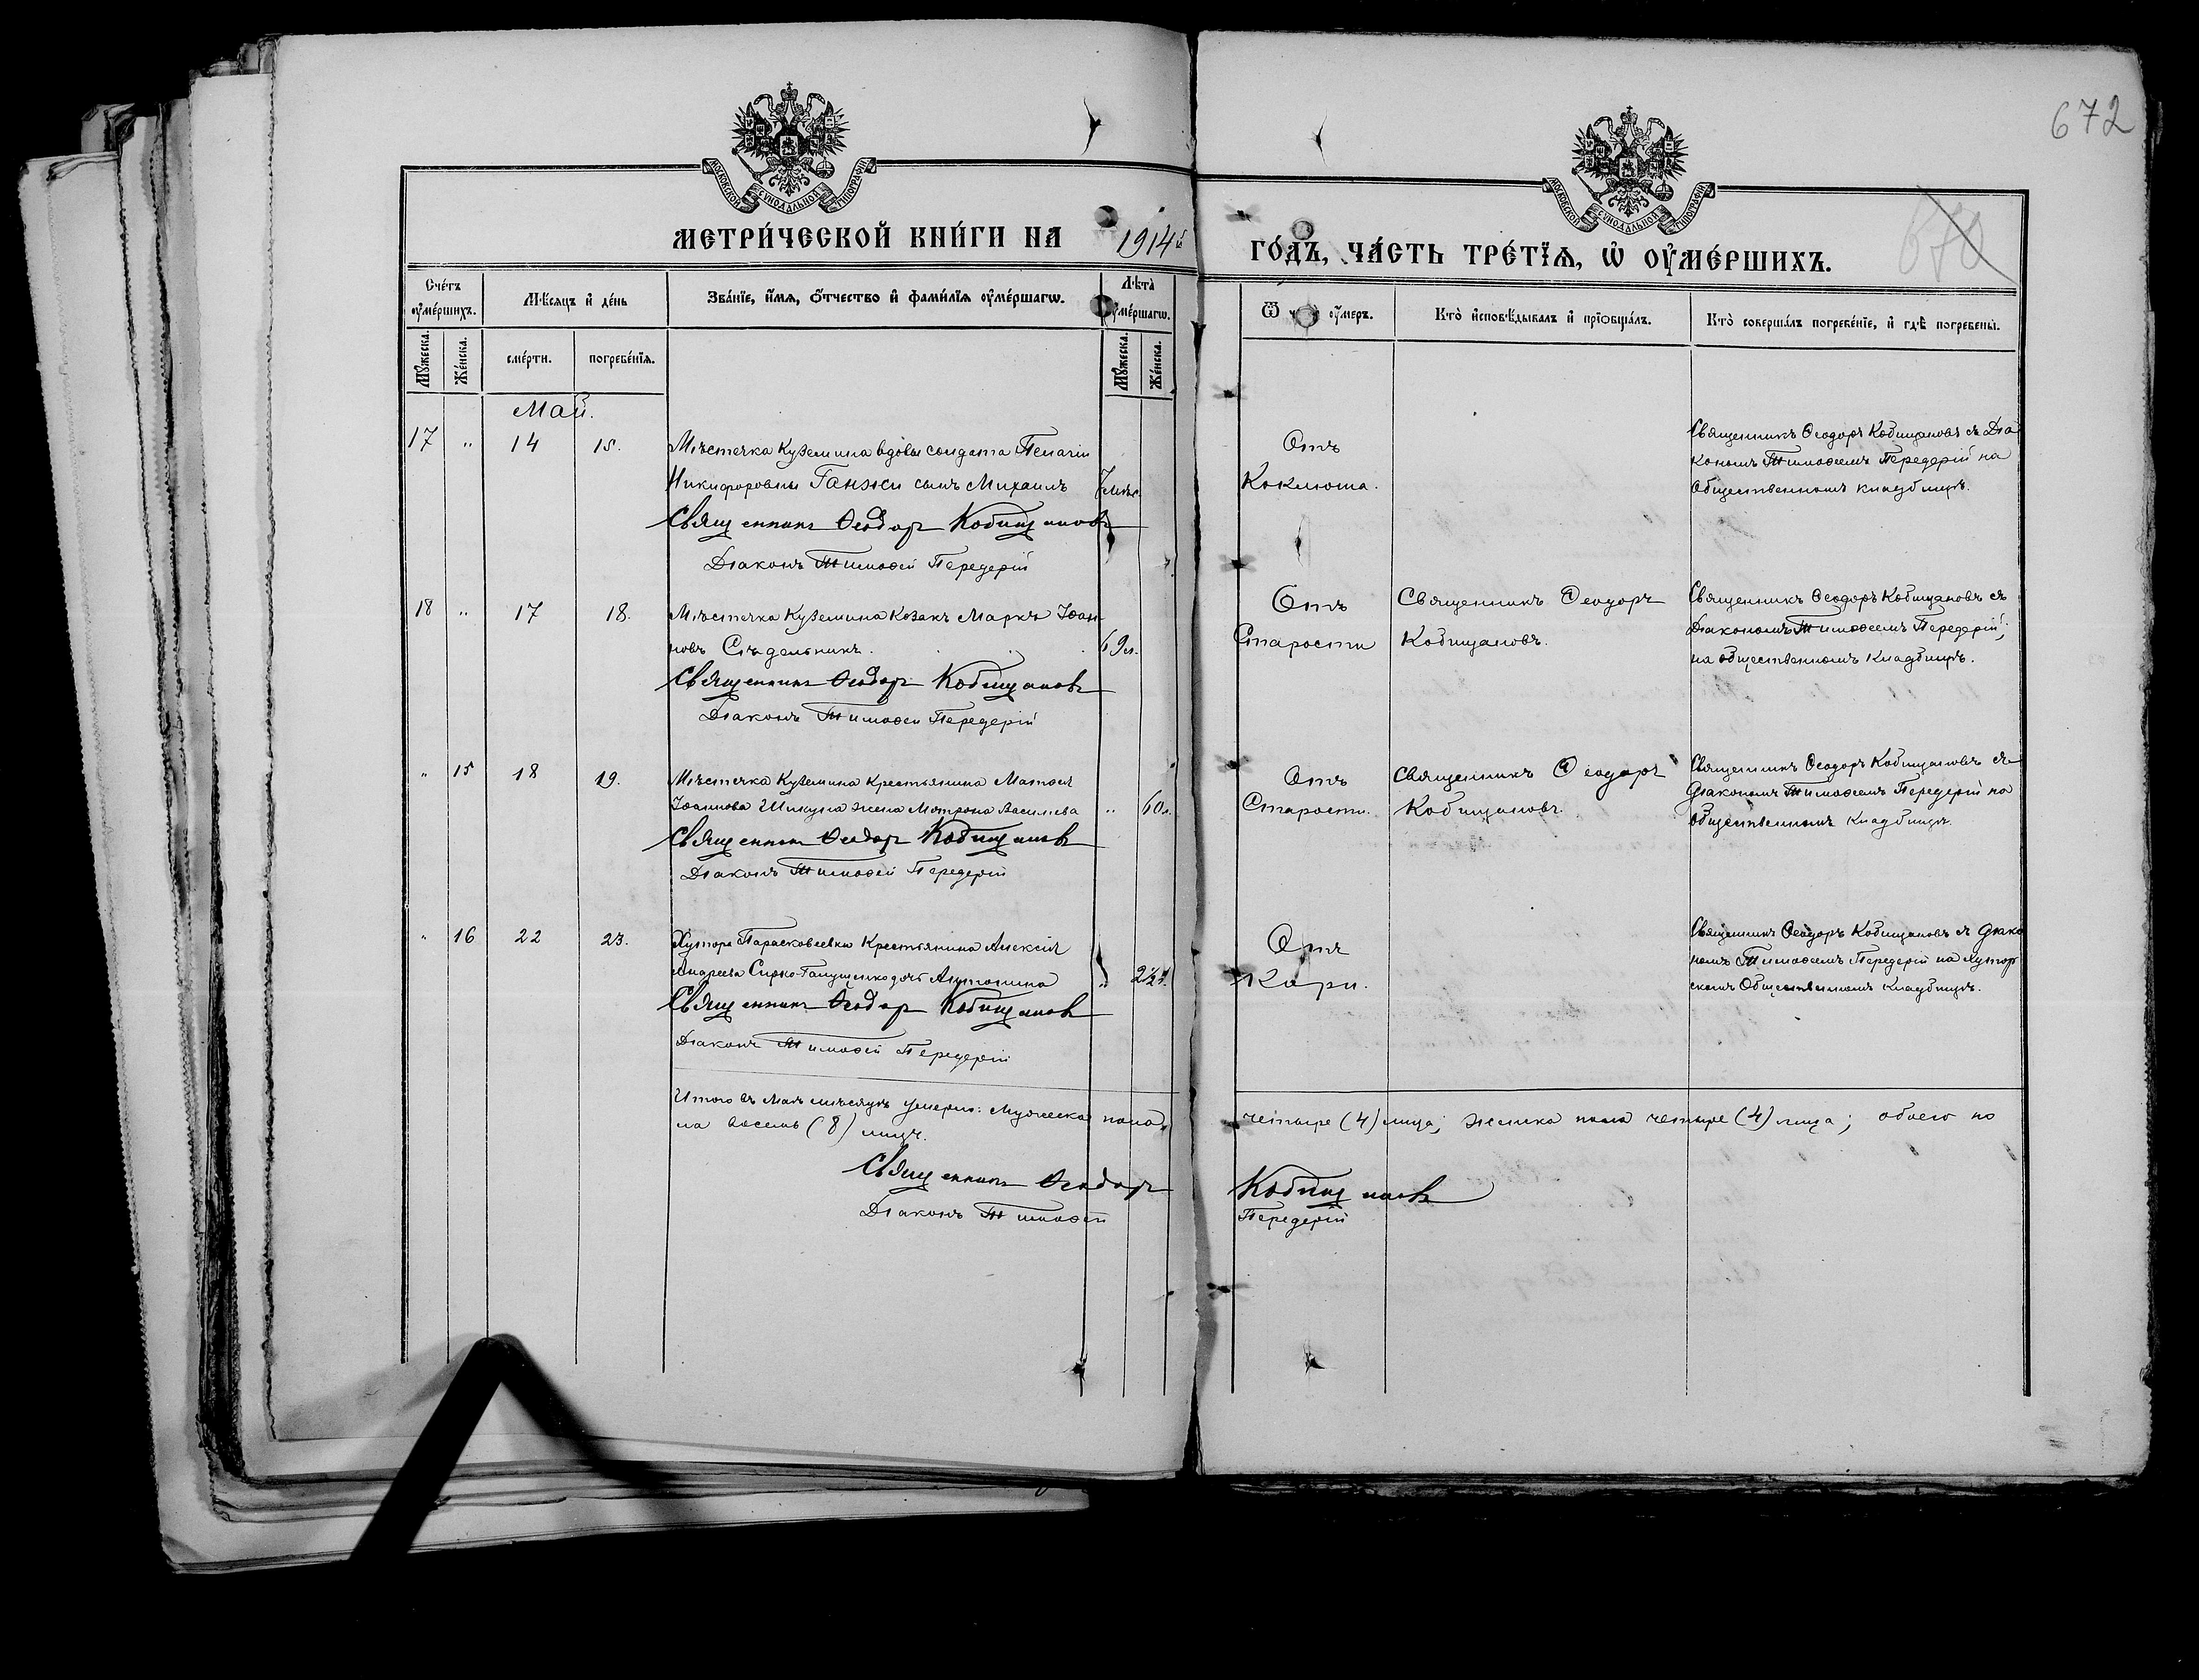 672
670
МОСКОВСКОЙ СѴНОДАЛЬНОЙ ТИПОГРАФІИ
МОСКОВСКОЙ СѴНОДАЛЬНОЙ ТИПОГРАФІИ
МЕТРИ́ЧЕСКОЙ КНИ́ГИ НА 1914й
ГО́ДЪ, ЧА́СТЬ ТРЕ́ТЇѦ, Ѡ҆ ОУ҆МЕ́РШИХЪ.
Сче́тъ оу҆ме́ршихъ.
Мѣ́сѧцъ и҆ де́нь
Зва́нїе, и҆́мѧ, ѻ҆́тчество и҆ фами́лїѧ оу҆ме́ршагѡ.
Лѣта̀ оу҆ме́ршагѡ.
Ѿ чегѡ̀ оу҆́меръ.
Кто̀ и҆сповѣ́дывалъ и҆ прїобща́лъ.
Кто̀ соверша́лъ погребе́нїе, и҆ гдѣ̀ погребены̀.
Мꙋ́жеска.
Же́нска.
сме́рти.
погребе́нїѧ.
Мꙋ́жеска.
Же́нска.
Май.
17 " 14 15. Мѣстечка Куземина вдовы солдата Пелагіи
Никифоровны Ганжи сынъ Михаилъ 7 мѣс.
Священникъ Ѳеодоръ Кобищановъ
Діаконъ Тимоѳей Передерій
Отъ
Коклюша.
Священникъ Ѳеодоръ Кобищановъ съ Діа
кономъ Тимоѳеемъ Передерій на
Общественномъ кладбищѣ.
18 " 17 18. Мѣстечка Куземина Козакъ Маркъ Іоан
новъ Слѣдельникъ. 69 л.
Священникъ Ѳеодоръ Кобищановъ
Діаконъ Тимоѳей Передерій
Отъ
Старости
Священникъ Ѳеодоръ
Кобищановъ.
Священникъ Ѳеодоръ Кобищановъ съ
Діакономъ Тимоѳеемъ Передерій,
на общественномъ Кладбищѣ.
" 15 18 19. Мѣстечка Куземина Крестьянина Матѳея
Іоаннова Шикула жена Мотрона Васильева " 60 л.
Священникъ Ѳеодоръ Кобищановъ
Діаконъ Тимоѳей Передерій
Отъ
Старости.
Священникъ Ѳеодоръ
Кобищановъ.
Священникъ Ѳеодоръ Кобищановъ съ
Діакономъ Тимоѳеемъ Передерій на
Общественномъ кладбищѣ.
" 16 22 23. Хутора Парасковеевки Крестьянина Алексія
Андреева Сирко-Галушенко дочь Антонина " 2½ г.
Священникъ Ѳеодоръ Кобищановъ
Діаконъ Тимоѳей Передерій
Отъ
Кори.
Священникъ Ѳеодоръ Кобищановъ съ Діако
номъ Тимоѳеемъ Передерій на Хутор
скомъ Общественномъ Кладбищѣ.
Итого въ Маѣ мѣсяцѣ умерло: Мужеска пола четыре (4) лица; женска пола четыре (4) лица; обоего по
ла восемь (8) лицъ.
Священникъ Ѳеодоръ Кобищановъ
Діаконъ Тимоѳей Передерій